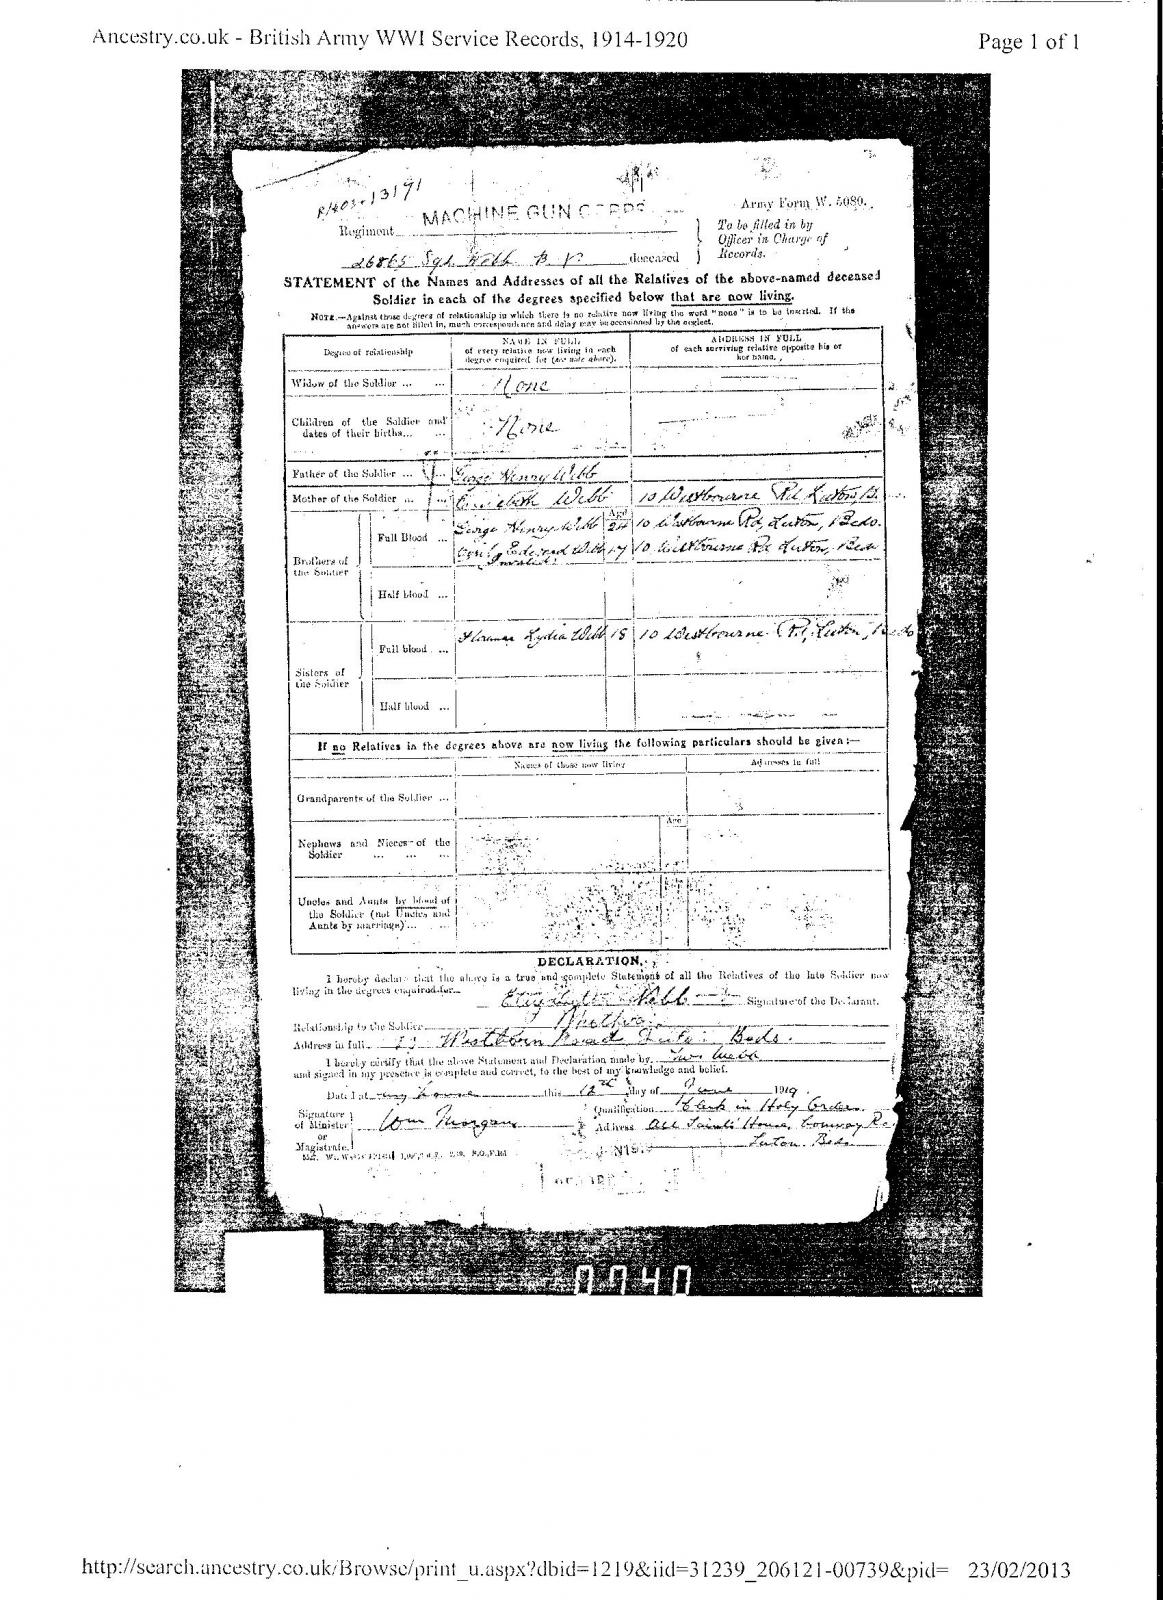 Ancestry.co.uk - British Army WWI Service Records, 1914-1920 Page 1 of 1
13191
MACHINE GUN CORPS
Army Form W. 5080.
Regiment
To be filled in by
Officer in Charge of
Records.
26865 Sgt. Webb B. V. deceased
STATEMENT of the Names and Addresses of all the Relatives of the above-named deceased
Soldier in each of the degrees specified below that are now living.
NOTE.—Against those degrees of relationship in which there is no relative now living the word "none" is to be inserted. If the
answers are not filled in, much correspondence and delay may be occasioned by the neglect.
Degree of relationship
NAME IN FULL
of every relative now living in each
degree enquired for (see note above).
ADDRESS IN FULL
of each surviving relative opposite his or
her name.
Widow of the Soldier ... ... None
Children of the Soldier and
dates of their births... ... None
Father of the Soldier ... ... George Henry Webb
Mother of the Soldier ... ... Elizabeth Webb 10 Westbourne Rd, Luton, B
Age
Brothers of
the Soldier
Full Blood ... George Henry Webb 24 10 Westbourne Rd, Luton, Beds.
Edward Webb 17 10 Westbourne Rd Luton, Beds
Half blood ...
Sisters of
the Soldier
Full blood ... Florence Lydia Webb 18 10 Westbourne Rd, Luton, Beds
Half blood ...
If no Relatives in the degrees above are now living the following particulars should be given:—
Names of those now living Addresses in full
Grandparents of the Soldier ...
Age
Nephews and Nieces of the
Soldier ... ... ...
Uncles and Aunts by blood of
the Soldier (not Uncles and
Aunts by marriage) ... ...
DECLARATION.
I hereby declare that the above is a true and complete Statement of all the Relatives of the late Soldier now
living in the degrees enquired for.
Elizabeth Webb Signature of the Declarant.
Relationship to the Soldier Mother
Address in full Westborn Road Luton Beds.
I hereby certify that the above Statement and Declaration made by Mrs Webb
and signed in my presence is complete and correct, to the best of my knowledge and belief.
Dated at my house this 12th day of June 1919
Signature
of Minister
or
Magistrate.
Wm Morgan
Qualification Clerk in Holy Orders
Address All Saints' House, Conway Rd
Luton. Beds
0740
http://search.ancestry.co.uk/Browse/print_u.aspx?dbid=1219&iid=31239_206121-00739&pid= 23/02/2013